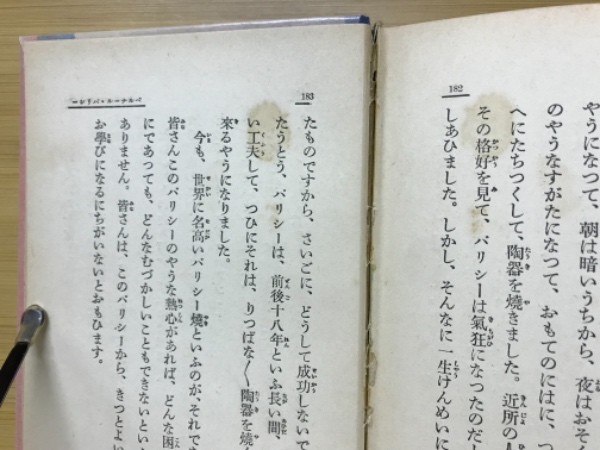 182
やうになつて、朝は暗いうちから、夜はおそ
のやうなすがたになつて、おもてのにはに、つ
へにたちつくして、陶器を燒きました。近所の人
その格好を見て、バリシーは氣狂になつたのだし
しあひました。しかし、そんなに一生けんめいに
183
たものですから、さいごに、どうして成功しないで
たうとう、バリシーは、前後十八年といふ長い間、
い工夫して、つひにそれは、りつぱな〱陶器を燒
來るやうになりました。
今も、世界に名高いバリシー燒といふのが、それで
皆さんこのバリシーのやうな熱心があれば、どんな困
にであつても、どんなむづかしいこともできないといふ
ありません。皆さんは、このバリシーから、きつとよい
お學びになるにちがいないとおもひます。